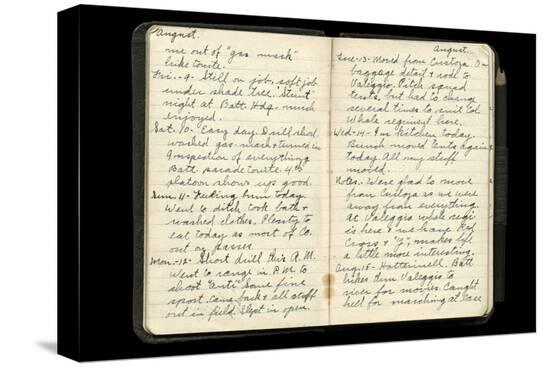 August.
me out of "gas mask"
hike tonite.
Fri.-9- Still on job, soft job
under shade tree. "Stunt"
night at Batt. Hdq. much
enjoyed.
Sat. 10- Easy day. Drill short.
washed gas mask & turned in
Inspection of everything
Batt. parade tonite. 4th
platoon shows up good.
Sun. 11- Feeling bum today
Went to ditch, took bath &
washed clothes. Plenty to
eat today as most of Co.
out on passes
Mon.-12- Short drill this A.M.
Went to range in P.M. to
shoot "Enti" Some fine
sport. Came back & all stuff
out in field. Slept in open.
August
Tues-13- Moved from Custoza. On
baggage detail & rode to
Valeggio. Pitch squad
tents, but had to change
several times to suit Col.
Whole regiment here.
Wed-14- In kitchen today.
Bunch moved tents again
today. All my stuff
moved.
Notes- Were glad to move
from Custoza as we were
away from everything.
At Valeggio whole regi
is here & we have Red
Cross & "Y", makes life
a little more interesting.
Aug-15- Hotterinell. Batt
hikes thru Valeggio to
river for movies. Caught
hell for marching at ease